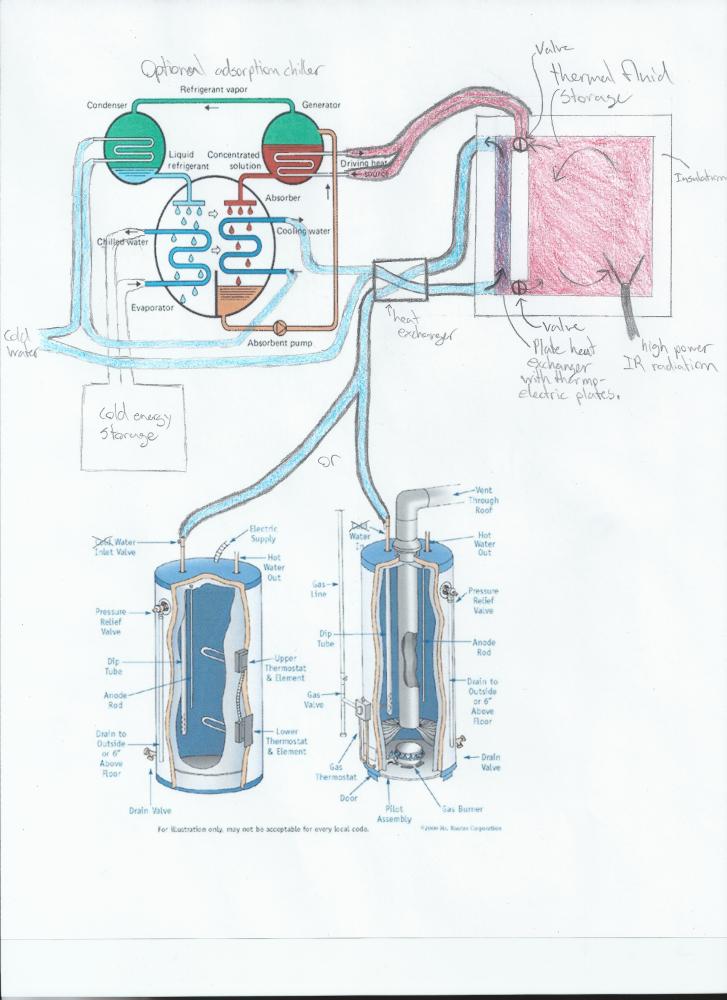 Optional adsorption chiller
Valve
thermal fluid
storage
Insulation
Refrigerant vapor
Condenser
Generator
Liquid
refrigerant
Concentrated
solution
Driving heat
source
Absorber
Chilled water
Cooling water
Evaporator
Absorbent pump
Cold
water
heat
exchanger
valve
Plate heat
exchanger
with thermo-
electric plates.
high power
IR radiation
Cold energy
storage
or
Electric
Supply
Water
Inlet Valve
Hot
Water
Out
Pressure
Relief
Valve
Dip
Tube
Anode
Rod
Upper
Thermostat
& Element
Drain to
Outside
or 6"
Above
Floor
Lower
Thermostat
& Element
Drain Valve
Vent
Through
Roof
Water
In
Hot
Water
Out
Gas
Line
Pressure
Relief
Valve
Dip
Tube
Anode
Rod
Gas
Valve
Drain to
Outside
or 6"
Above
Floor
Gas
Thermostat
Drain
Valve
Door
Pilot
Assembly
Gas Burner
For illustration only, may not be acceptable for every local code.